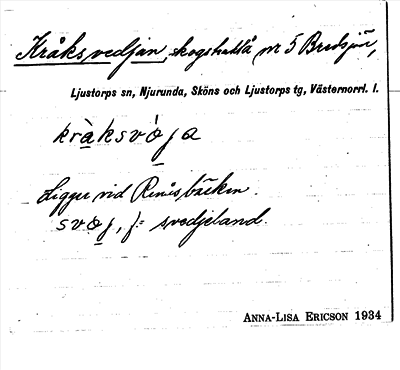 Kråksvedjan, skogstrakt å nr 5 Bredsjön,
Ljustorps sn, Njurunda, Sköns och Ljustorps tg, Västernorrl. l.
kràksvo̠ja
Ligger vid Renåsbäcken.
svo̠j, f = svedjeland.
ANNA-LISA ERICSON 1934